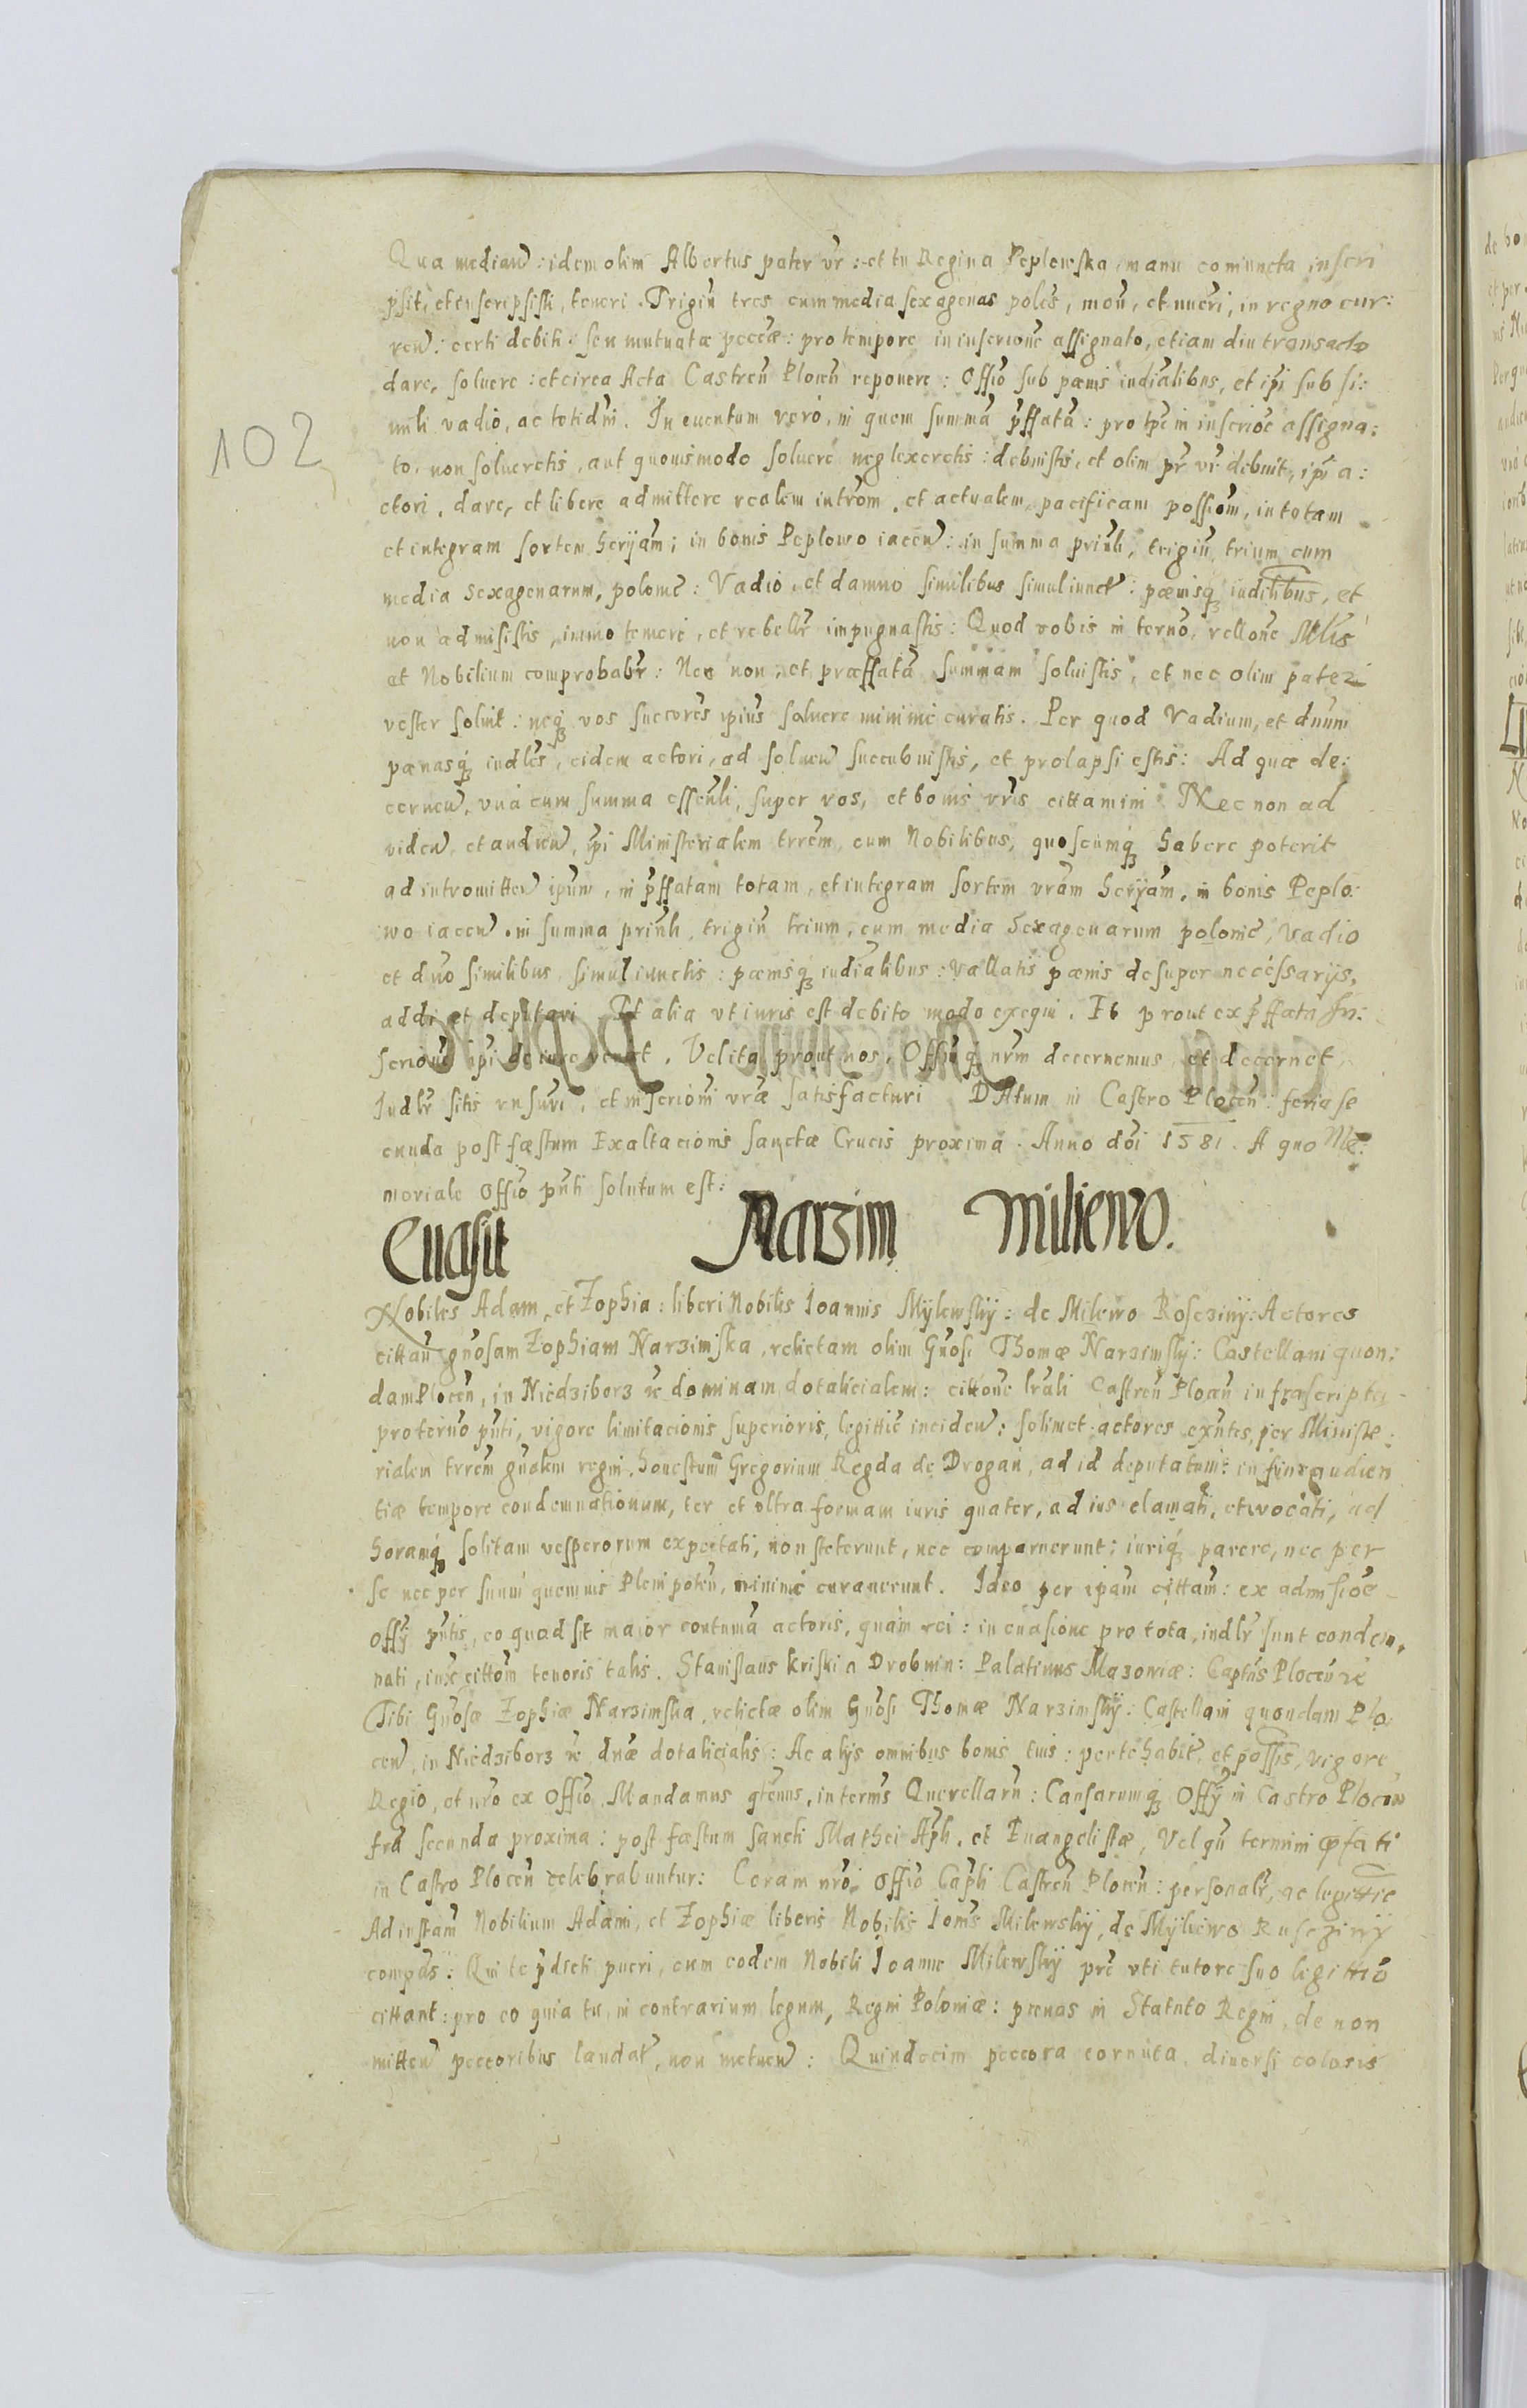 Qua median: idem olim Albertus pater vr: et tu Regina Peplewska manu comuncta inscri
psit, et inscripsisti, teneri. Trigin tres cum media sexagenas poles, mon, et nueri, in regno cur:
ren: certi debiti: seu mutuatæ peccæ: pro tempore in inscrione assignato, etiam diu transacto
dare, soluere: et circa Acta Castren Plocen reponere: Offio sub pænis iudialibus, et ipi sub si:
mili vadio, ac totidm. In euentum verò, in quem summa pffata: pro tpe in inscrioe assigna:
to, non solueretis, aut quouismodo soluere neglexeretis: debuistis, et olim pr vr debuit, ipi a:
ctori, dare, et libere admittere realem introm, et actualem, pacificam possiom, in totam
et integram sortem herijam; in bonis Peplowo iacen: in summa prinli, trigin trium cum
media sexagenarum, polonic: Vadio, et damno similibus simul iunct: pænisq iudilibus, et
non admisistis, immo temere, et rebellr impugnastis: Quod vobis in terno, rellone Mlis
et Nobilium comprobabr: Nec non, et præffata summam soluistis, et nec olim pater
vester soluit: neq vos sucores ipius soluere minime curatis. Per quod Vadium, et dnum
pænasq iudles, eidem actori, ad soluen succubuistis, et prolapsi estis: Ad quæ de:
cernen, vna cum summa essenli, super vos, et bonis vris cittamini. Nec non ad
viden, et audien, ipi Ministerialem trrem, cum Nobilibus, quoscumq habere poterit
ad intromitten ipum, in pffatam totam, et integram sortem vram herijam, in bonis Peplo:
wo iacen. in summa prinli, trigin trium, cum media Sexagenarum polonic, vadio
et dno similibus, simul iunctis: pænisq iudialibus: vallatis pænis desuper necessarijs,
addi et deputari. Et alia vt iuris est debito modo exequi. Et prout ex pffata In:
scrione ipi de iure venit. Vel ita prout nos, Offiuq nrm decernemus, et decernet,
Iudlr sitis visuri, et inscrioni vræ satisfacturi DAtum in Castro Plocen: feria se
cunda post fæstum Exaltacionis sanctæ Crucis proxima. Anno doi 1581. A quo Me:
moriale Offio pnti solutum est:
Euasit Narzim Miliewo.
Nobiles Adam, et Zophia: liberi Nobilis Ioannis Mylewsky: de Milewo Rosczissy: Actores
cittan gnosam Zophiam Narzimska, relictam olim Gnosi Thomæ Narzimsky: Castellani quon:
dam Plocen, in Niedzborz &c dominam dotalicialem: cittone lrali Castren Plocen infrascripta
pro terno pnti, vigore limitacionis superioris, legittie inciden: solimet actores exntes, per Ministe:
rialem trrem gnalem regni, honestum Gregorium Regda de Drogan, ad id deputatum: in fine audien
tiæ tempore condemnationum, ter et vltra formam iuris quater, ad ius clamati, et vocati, ad
horamq solitam vesperorum expectati, non steterunt, nec comparuerunt: iuriq parere, nec per
se nec per suum quemuis Plenipoten, minime curauerunt. Ideo per ipam cittam: ex admisioe
Offij pntis, eo quod sit maior contuma actoris, quàm rei: in euasione pro tota, iudlr sunt condem,
nati, iux cittom tenoris talis. Stanislaus kriski a Drobnin: Palatinus Mazouiæ: Captus Plocen &c
Tibi Gnosæ Zophiæ Narzimska, relictæ olim Gnosi Thomæ Narzimskij: Castellani quondam Plo:
cen, in Niedzborz &c dnæ dotalicialis: Ac alijs omnibus bonis tuis: per te habit, et possis, vigore
Regio, et nro ex Offio, Mandamus qtenus, in termis Querellaru: Causarumq Offij in Castro Plocen
fra secunda proxima: post fæstum sancti Mathei Aph. et Euangelistæ, Vel qn termini pfati
in Castro Plocen celebrabuntur: Coram nroi Offio Caplij Castren Plocen: personalr, ac legittie
Ad instam Nobilium Adami, et Zophiæ liberis Nobilis Ioms Milewskij, de Myliewo Rusczissy
compds: Qui te pdicti pueri, cum eodem Nobili Ioanne Milewskij pre vti tutore suo legittio
cittant: pro eo quia tu, in contrarium legum, Regni Poloniæ: pænas in Statuto Regni, de non
mitten peccoribus laudat, non metuen: Quindecim peccora cornuta, diuersi coloris
102